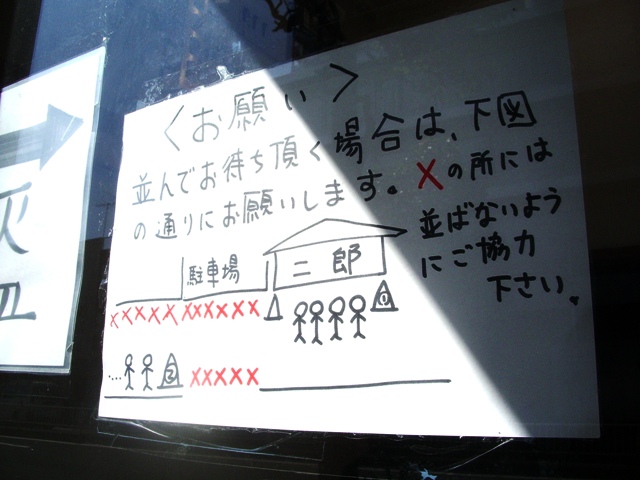 <お願い>
並んでお待ち頂く場合は、下図
の通りにお願いします。×の所には
並ばないよう
にご協力
下さい。
駐車場
二郎
×××××
××××××
①
②
×××××
灰
皿